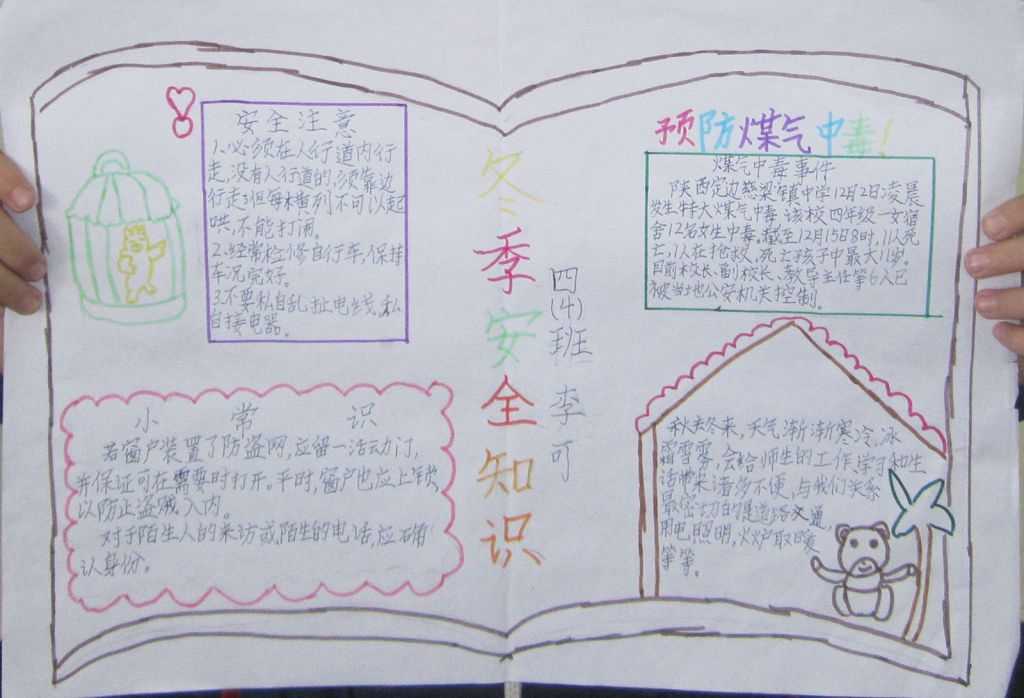 安全注意
1.必须在人行道内行
走,没有人行道的,须靠边
行走3但每木横列不可以起
哄,不能打闹。
2.经常检修自行车,保持
车况完好。
3.不要私自乱扯电线,私
自接电器。
小常识
若窗户装置了防盗网,应留一活动门,
并保证可在需要时打开。平时,窗户也应上锁
以防止盗贼入内。
对于陌生人的来访或陌生的电话,应确
认身份。
冬季安全知识
四(4)班 李可
预防煤气中毒!
煤气中毒事件
陕西定边慈梁镇中学12月2日凌晨
发生特大煤气中毒 该校四年级一女宿
舍12名女生中毒。截至12月15日8时,11人死
亡,1人在抢救,死亡孩子中最大11岁。
目前校长、副校长、教导主任等6人已
被当地公安机关控制。
秋去冬来,天气渐渐寒冷,冰
霜雪雾,会给师生的工作学习和生
活带来诸多不便,与我们关系
最密切的是道路交通,
用电照明,火炉取暖
等等。